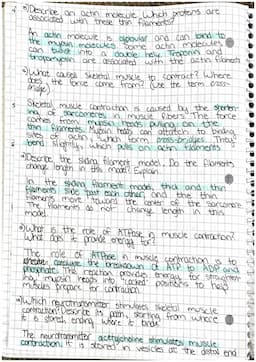 a) Describe an actin molecule. Which proteins are
associated with these thin filaments?
An actin molecule is globular and can bind to
the myosin molecules. Some actin molecules
can twist into a double helix. Troponin and
tropomyosin are associated with the actin filament
What causes skeletal muscle to contract? Where
does the force come from? (Use the term cross-
bridge)
Skeletal muscle contraction is caused by the shorten-
ing of sarcomeres in muscle fibers. The force
comes from myosin heads pulling on the
thin filaments. Myosin heads can attatch to binding
sites on actin, which form cross-bridges. They
bend slightly, which pulls on actin filaments
Describe the sliding filament model. Do the filaments
change length in this model? Explain.
In the sliding filaments model, thick and thin
filaments slide past each other and the thin
filaments move toward the center of the sarcomere
The filaments do not change length in this
model.
What is the role of ATPase in muscle contraction?
What does it provide energy for?
The role of ATPase in muscle contraction is to
catalyze the breakdown of ATP to ADP and
phosphate. This reaction provides energy for strengthen-
ing myosin heads into "cocked" positions to help
muscles prepare for contraction.
Which neurotransmitter stimulates skeletal muscle
contraction? Describe its path, starting from where
it is stored, ending where it binds
The neurotransmitter acetylcholine stimulates muscle
contraction. It is stored in vesicles at the distal end